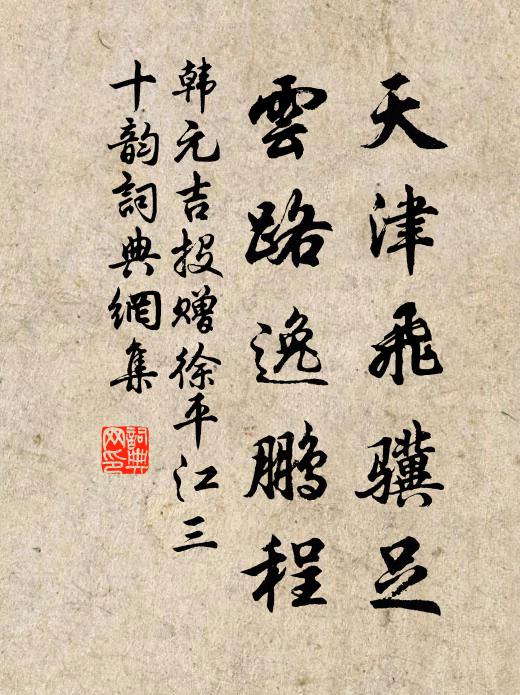 天津飛骥足
雲路逸鵬程
韩元吉投赠徐平江三
十韵詞典網集
詞典
网印